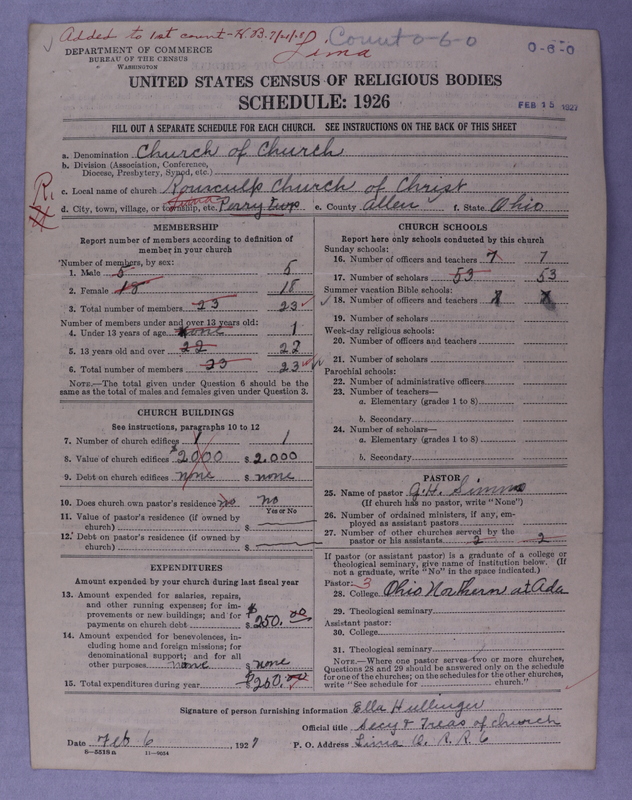 Added to 1st count - K.B. 7/21/28
Lima
Count 0-6-0
0-6-0
DEPARTMENT OF COMMERCE
BUREAU OF THE CENSUS
WASHINGTON
UNITED STATES CENSUS OF RELIGIOUS BODIES
SCHEDULE: 1926
FEB 15 1927
FILL OUT A SEPARATE SCHEDULE FOR EACH CHURCH. SEE INSTRUCTIONS ON THE BACK OF THIS SHEET
a. Denomination Church of Church
b. Division (Association, Conference,
Diocese, Presbytery, Synod, etc.)
c. Local name of church Rousculp Church of Christ
R.
Lima
d. City, town, village, or township, etc. Perry twp e. County Allen f. State Ohio
MEMBERSHIP
Report number of members according to definition of
member in your church
Number of members, by sex:
1. Male 5 5
2. Female 18 18
3. Total number of members 23 23
Number of members under and over 13 years old:
4. Under 13 years of age none 1
5. 13 years old and over 22 22
6. Total number of members 23 23
NOTE.—The total given under Question 6 should be
same as the total of males and females given under Question 3.
CHURCH BUILDINGS
See instructions, paragraphs 10 to 12
7. Number of church edifices 1 1
8. Value of church edifices $2000 $ 2.000
9. Debt on church edifices none $ none
10. Does church own pastor's residence no no
Yes or No
11. Value of pastor's residence (if owned by
church) $
12. Debt on pastor's residence (if owned by
church) $
EXPENDITURES
Amount expended by your church during last fiscal year
13. Amount expended for salaries, repairs,
and other running expenses; for im-
provements or new buildings; and for
payments on church debt $ 250.00
14. Amount expended for benevolences, in-
cluding home and foreign missions; for
denominational support; and for all
other purposes none $ none
15. Total expenditures during year $250.00
CHURCH SCHOOLS
Report here only schools conducted by this church
Sunday schools:
16. Number of officers and teachers 7 7
17. Number of scholars 53 53
Summer vacation Bible schools:
18. Number of officers and teachers
19. Number of scholars
Week-day religious schools:
20. Number of officers and teachers
21. Number of scholars
Parochial schools:
22. Number of administrative officers
23. Number of teachers—
a. Elementary (grades 1 to 8)
b. Secondary
24. Number of scholars—
a. Elementary (grades 1 to 8)
b. Secondary
PASTOR
25. Name of pastor G.H. Simms
(If church has no pastor, write "None")
26. Number of ordained ministers, if any, em-
ployed as assistant pastors
27. Number of other churches served by the
pastor or his assistants 2 2
If pastor (or assistant pastor) is a graduate of a college or
theological seminary, give name of institution below. (If
not a graduate, write "No" in the space indicated.)
Pastor: 3
28. College Ohio Northern at Ada
29. Theological seminary
Assistant pastor:
30. College
31. Theological seminary
NOTE.—Where one pastor serves two or more churches,
Questions 28 and 29 should be answered only on the schedule
for one of the churches; on the schedules for the other churches,
write "See schedule for church."
Signature of person furnishing information Ella Hullinger
Official title Secy & Treas of church
Date Feb 6, 1927 P. O. Address Lima O. R. R. 6
8—5518 a 11—9054